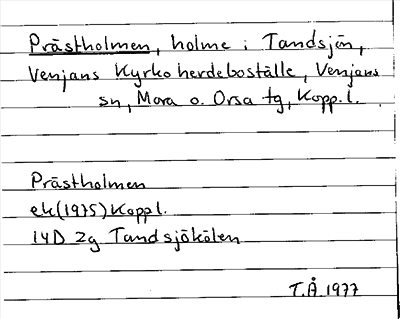 Prästholmen, holme i Tandsjön,
Venjans Kyrkoherdeboställe, Venjans
sn, Mora o. Orsa tg, Kopp.l.
Prästholmen
ek(1975)Kopp l.
14D 2g Tandsjökölen
T.Å 1977